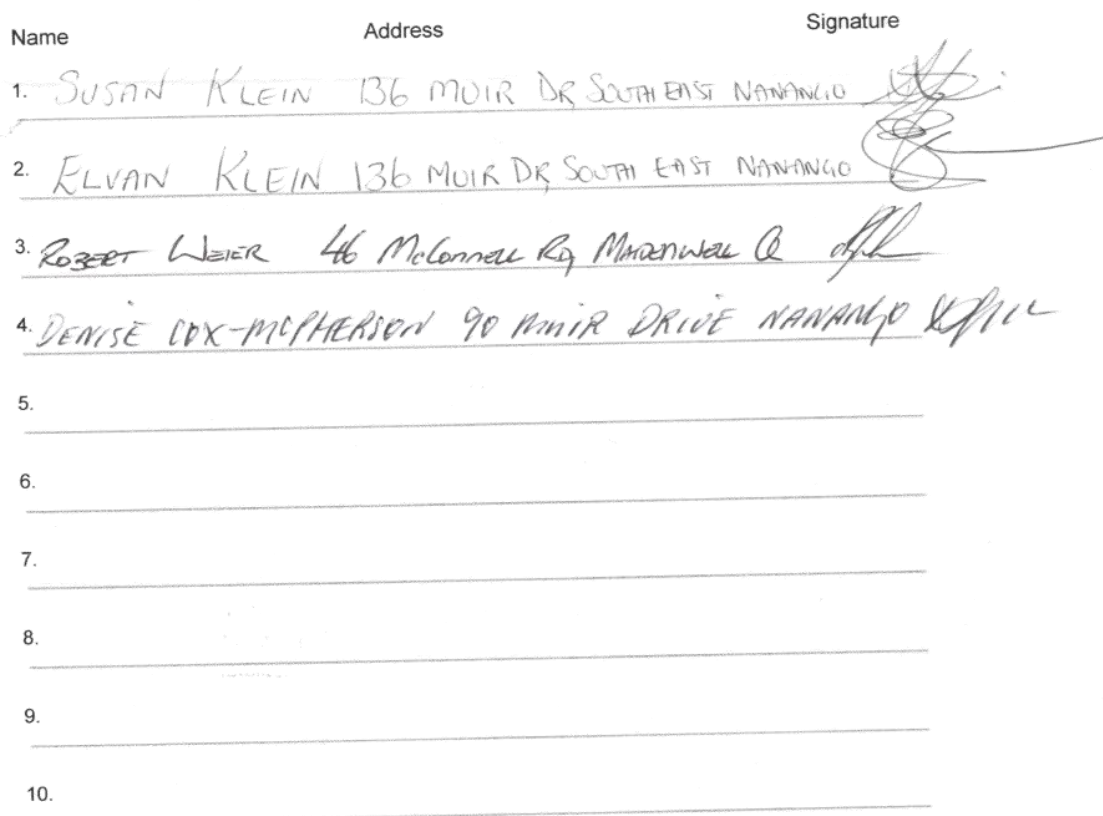 Name Address Signature
1. SUSAN KLEIN 136 MUIR DR SOUTH EAST NANANGO
2. ELVAN KLEIN 136 MUIR DR SOUTH EAST NANANGO
3. ROBERT WEIER 46 McConnell RD, MAIDENWELL Q
4. DENISE COX-MCPHERSON 90 MUIR DRIVE NANANGO
5.
6.
7.
8.
9.
10.